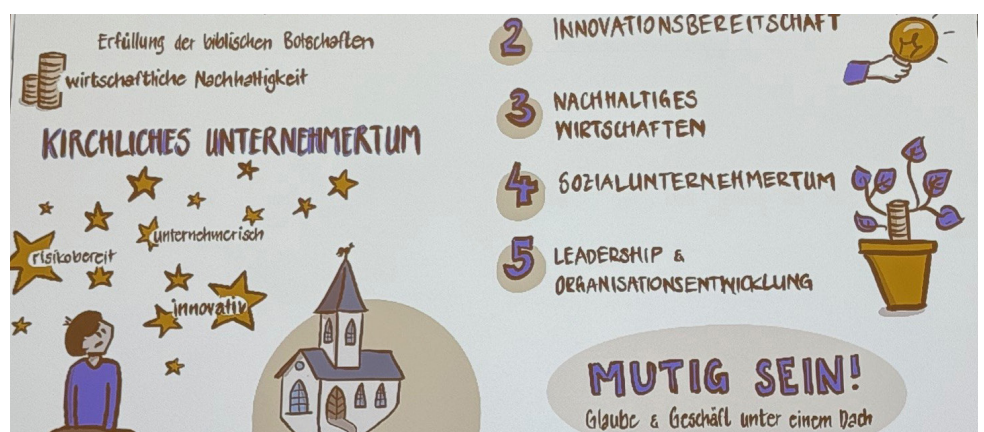 Erfüllung der biblischen Botschaften
wirtschaftliche Nachhaltigkeit
KIRCHLICHES UNTERNEHMERTUM
unternehmerisch
risikobereit
innovativ
2 INNOVATIONSBEREITSCHAFT
3 NACHHALTIGES
WIRTSCHAFTEN
4 SOZIALUNTERNEHMERTUM
5 LEADERSHIP &
ORGANISATIONSENTWICKLUNG
MUTIG SEIN!
Glaube & Geschäft unter einem Dach